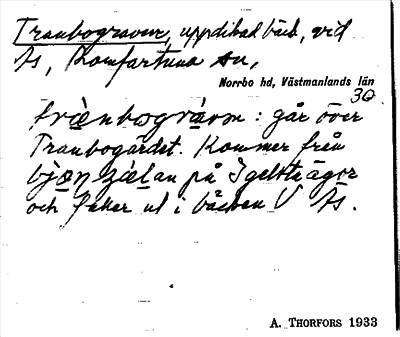 Tranbograven, uppdikad bäck, vid
Ås, Romfartuna sn,
Norrbo hd, Västmanlands län
30
tràenbográvən : går över
Tranbogärdet. Kommer från
på Igeltkägor
och faller ut i bäcken V Ås.
A. THORFORS 1933